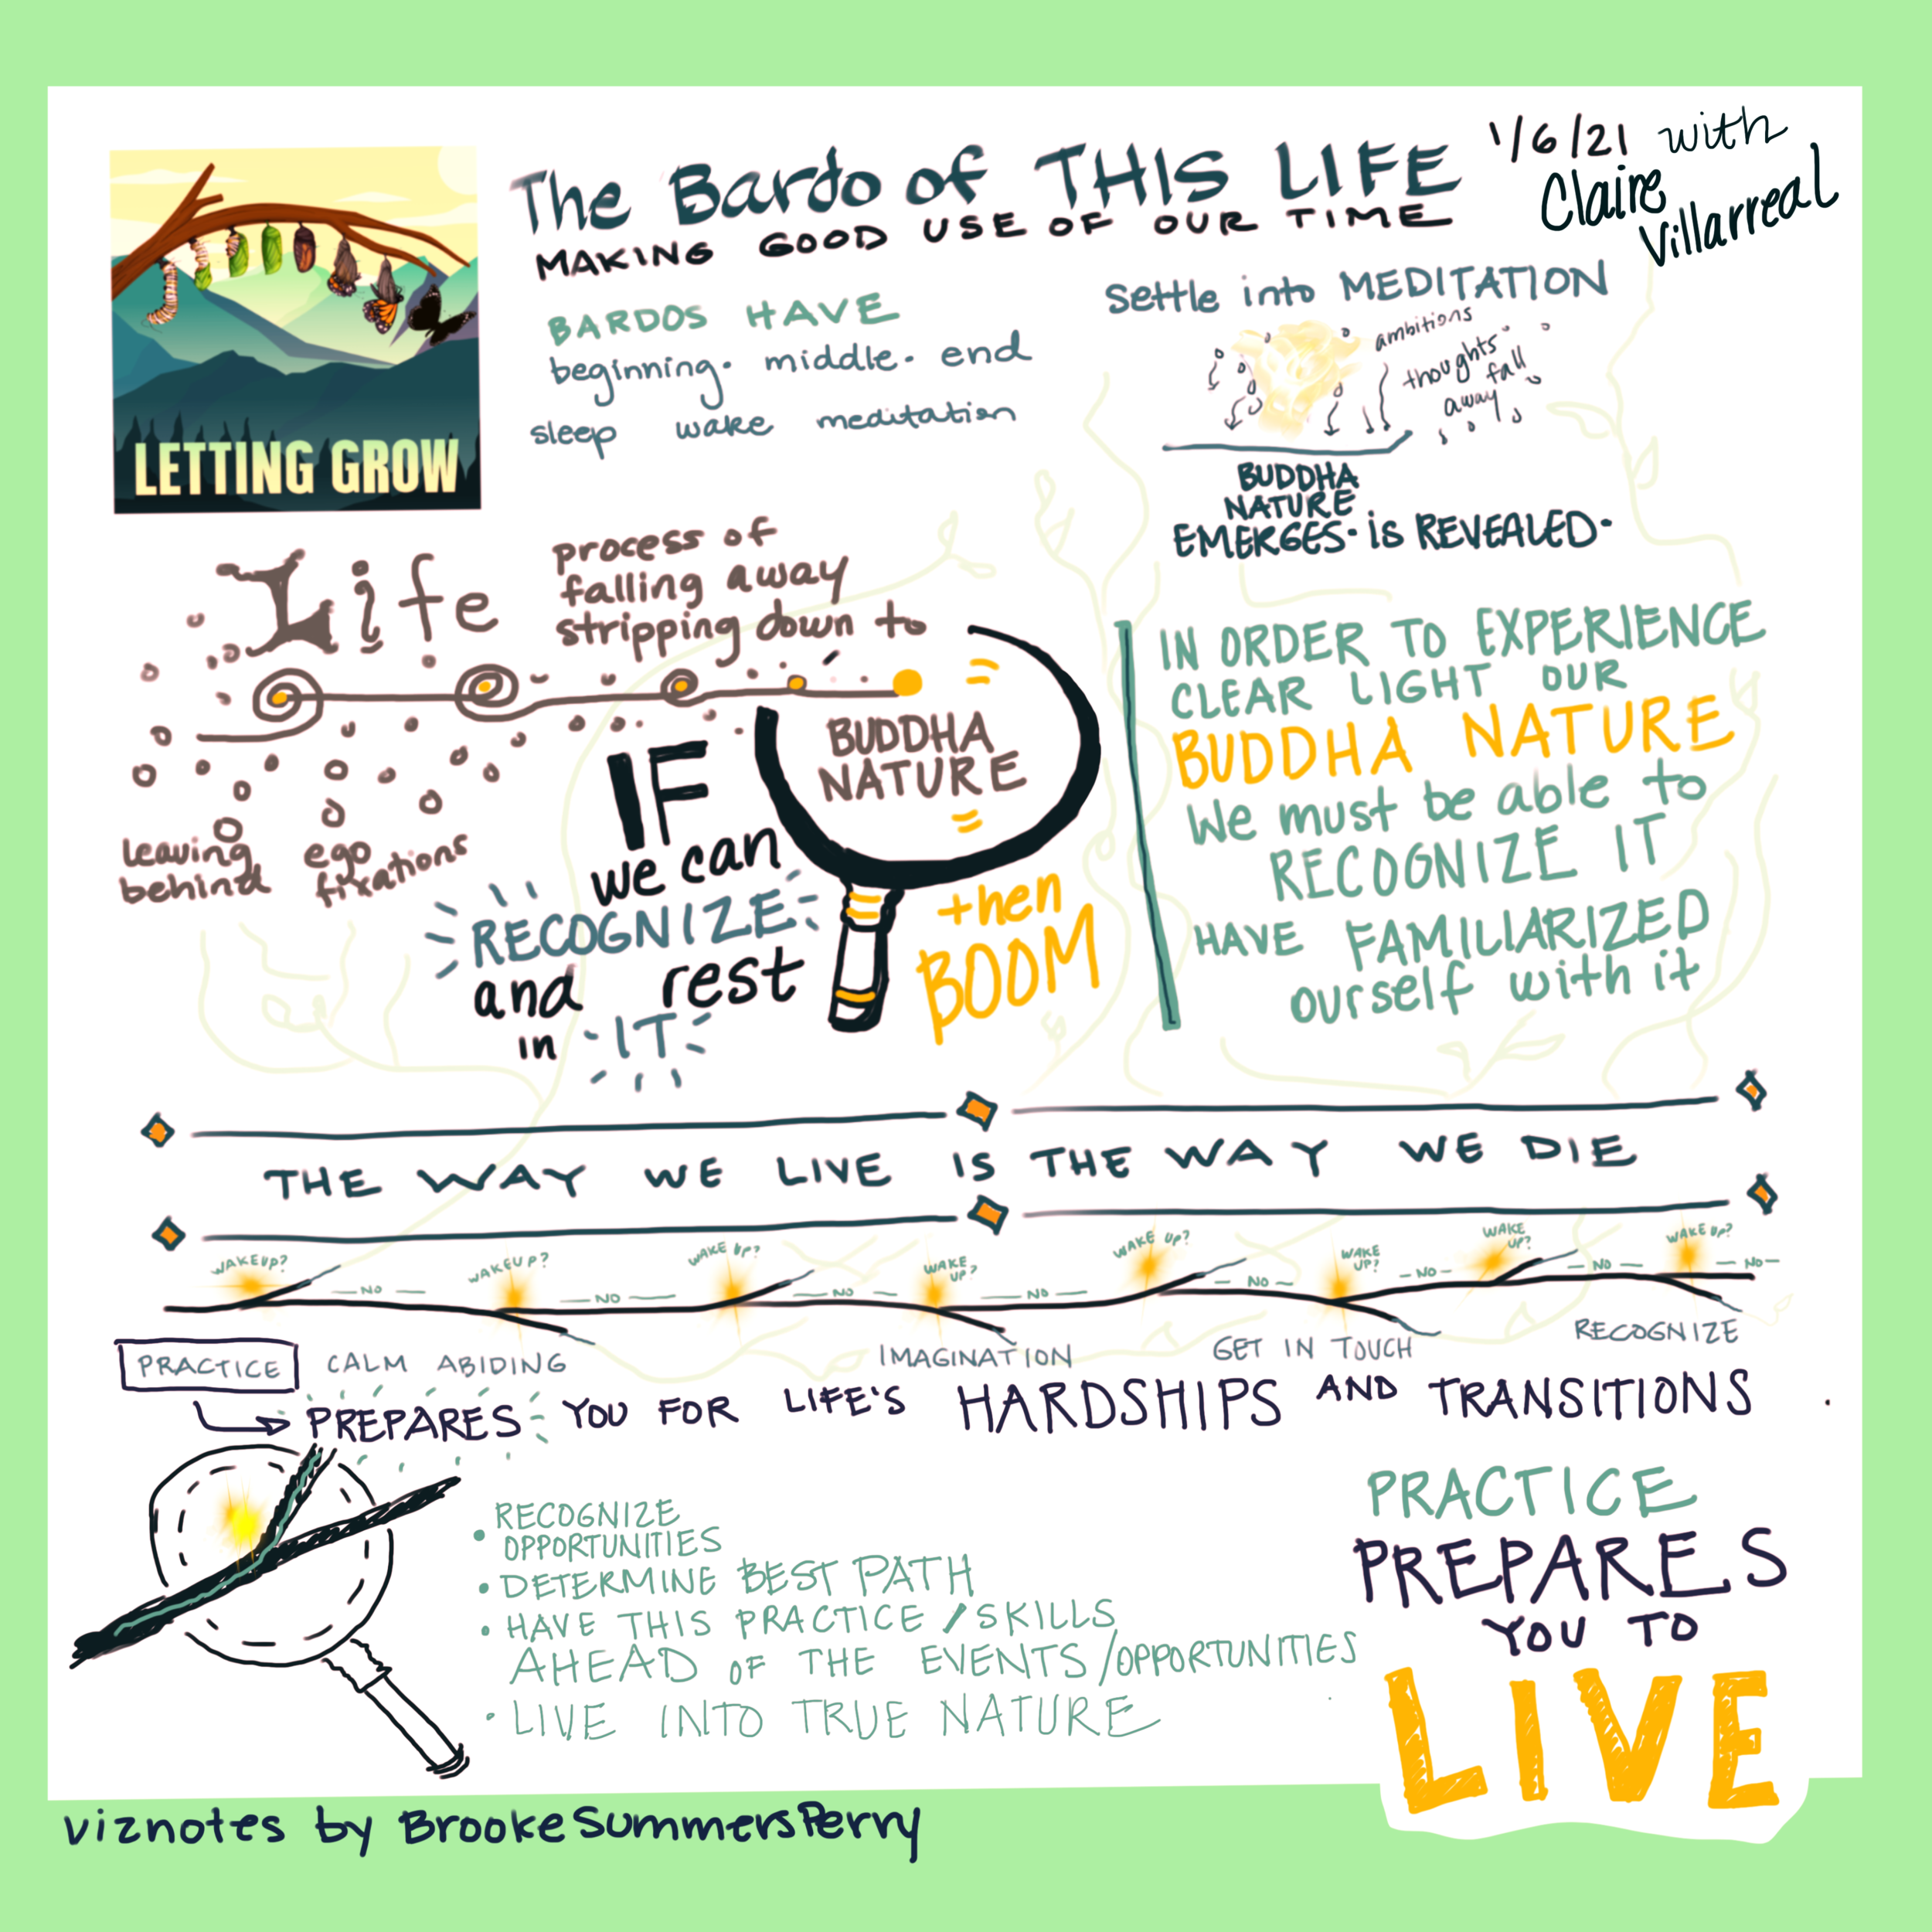 The Bardo of THIS LIFE
MAKING GOOD USE OF OUR TIME
1/6/21 with
Claire
Villarreal
LETTING GROW
BARDOS HAVE
beginning. middle. end
sleep wake meditation
Settle into MEDITATION
ambitions
thoughts
fall
away
BUDDHA
NATURE
EMERGES. is REVEALED.
Life
process of
falling away
stripping down to
BUDDHA
NATURE
leaving
behind
ego
fixations
IF
we can
RECOGNIZE
and rest
in IT
then
BOOM
IN ORDER TO EXPERIENCE
CLEAR LIGHT OUR
BUDDHA NATURE
We must be able to
RECOGNIZE IT
HAVE FAMILIARIZED
ourself with it
THE WAY WE LIVE IS THE WAY WE DIE
WAKEUP?
— NO —
WAKEUP?
— NO —
WAKE UP?
— NO —
WAKE
UP?
— NO —
WAKE UP?
— NO —
WAKE
UP?
— NO —
WAKE
UP?
— NO —
WAKE UP?
— NO —
PRACTICE CALM ABIDING IMAGINATION GET IN TOUCH RECOGNIZE
PREPARES YOU FOR LIFE'S HARDSHIPS AND TRANSITIONS
• RECOGNIZE
OPPORTUNITIES
• DETERMINE BEST PATH
• HAVE THIS PRACTICE / SKILLS
AHEAD OF THE EVENTS/OPPORTUNITIES
• LIVE INTO TRUE NATURE
PRACTICE
PREPARES
YOU TO
LIVE
viznotes by BrookeSummersPerry